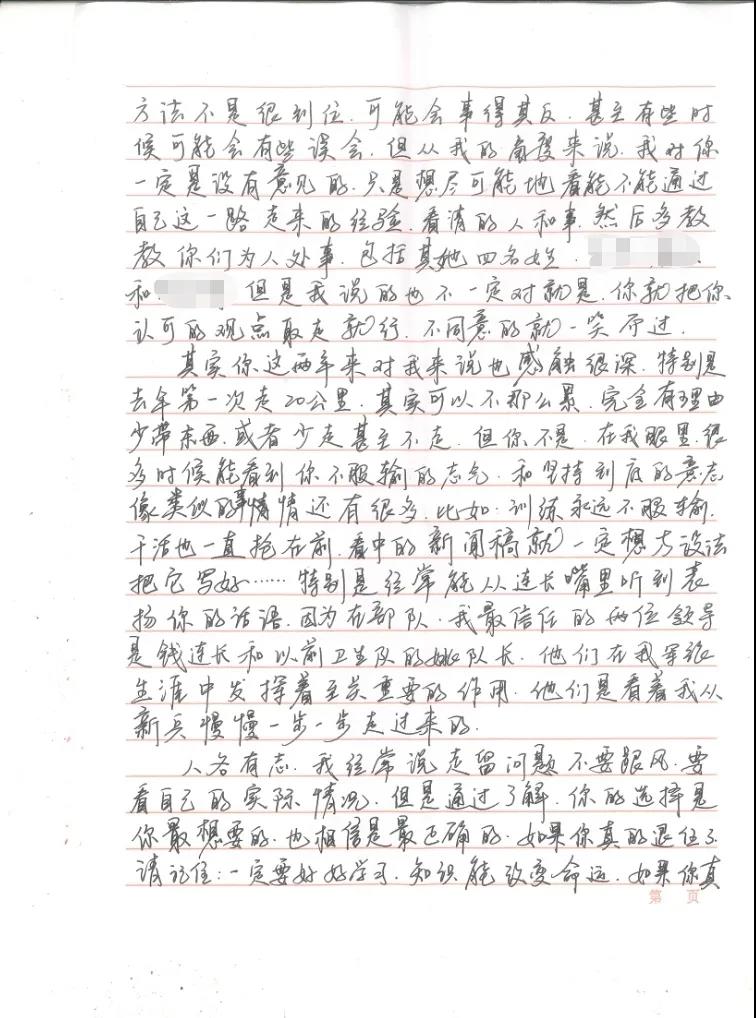 方法不是很到位，可能会事得其反，甚至有些时
候可能会有些误会，但从我的角度来说，我对你
一定是没有意见的，只是想尽可能地看能不能通过
自己这一路走来的经验，看清的人和事，然后多教
教你们为人处事，包括其她四名
和 但是我说的也不一定对就是，你就把你
认可的观点取走就行，不同意的就一笑而过。
其实你这两年来对我来说也感触很深，特别是
去年第一次走20公里，其实可以不那么累，完全有理由
少带东西，或者少走甚至不走，但你不是，在我眼里，很
多时候能看到你不服输的志气，和坚持到底的意志
像类似的事情还有很多，比如：训练永远不服输，
干活也一直抢在前，看中的新闻稿就一定想方设法
把它写好……特别是经常能从连长嘴里听到表
扬你的话语，因为在部队，我最信任的两位领导
是钱连长和以前卫生队的姚队长，他们在我军旅
生涯中发挥着至关重要的作用，他们是看着我从
新兵慢慢一步一步走过来的。
人各有志，我经常说走留问题不要跟风，要
看自己的实际情况，但是通过了解，你的选择是
你最想要的，也相信是最正确的，如果你真的退伍了
请记住：一定要好好学习，知识能改变命运，如果你真
第 页